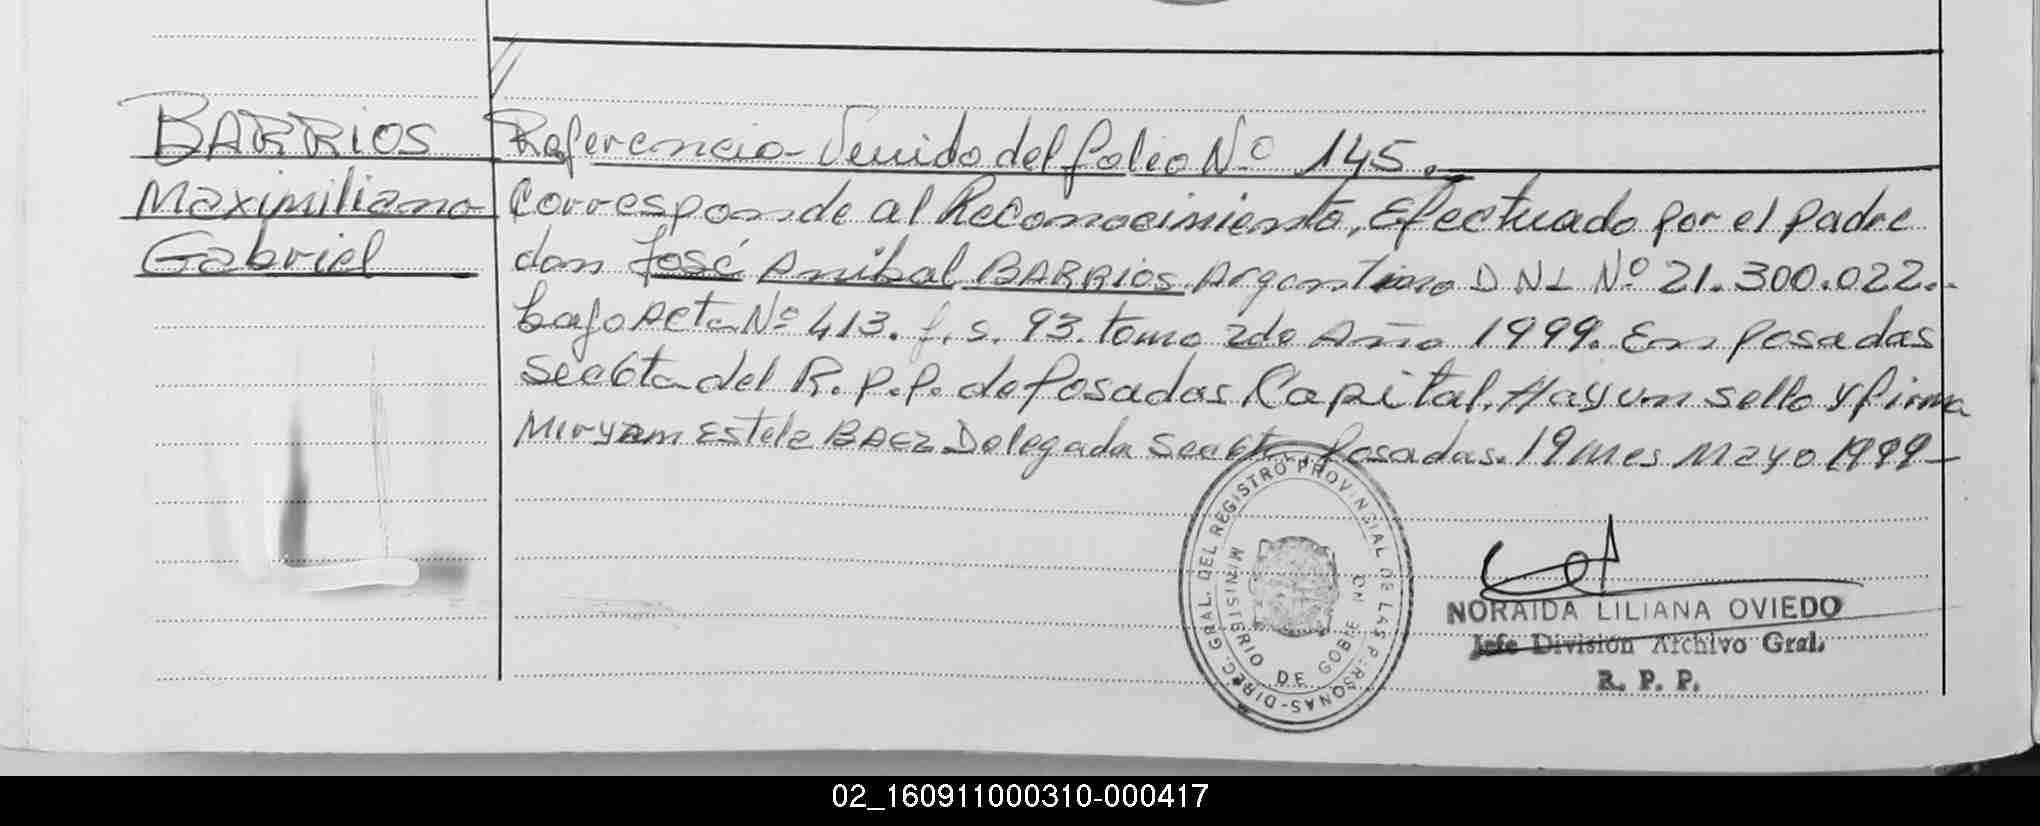 BARRIOS
Maximiliano
Gabriel
Referencia - Venido del folio Nº 145.
Corresponde al Reconocimiento, Efectuado por el padre
don José Anibal BARRIOS, Argentino DNI Nº 21.300.022.-
bajo Acta Nº 413. f.s. 93. tomo 2do Año 1999. En Posadas
Secc 6ta del R.P.P. de Posadas Capital. Hay un sello y firma
Miryam Estela BAEZ Delegada Secc 6ta Posadas. 19 mes Mayo 1999-
DIREC. GRAL. DEL REGISTRO PROVINCIAL DE LAS PERSONAS-
MINISTERIO DE GOBIERNO
NORAIDA LILIANA OVIEDO
Jefe División Archivo Gral.
R. P. P.
02_160911000310-000417